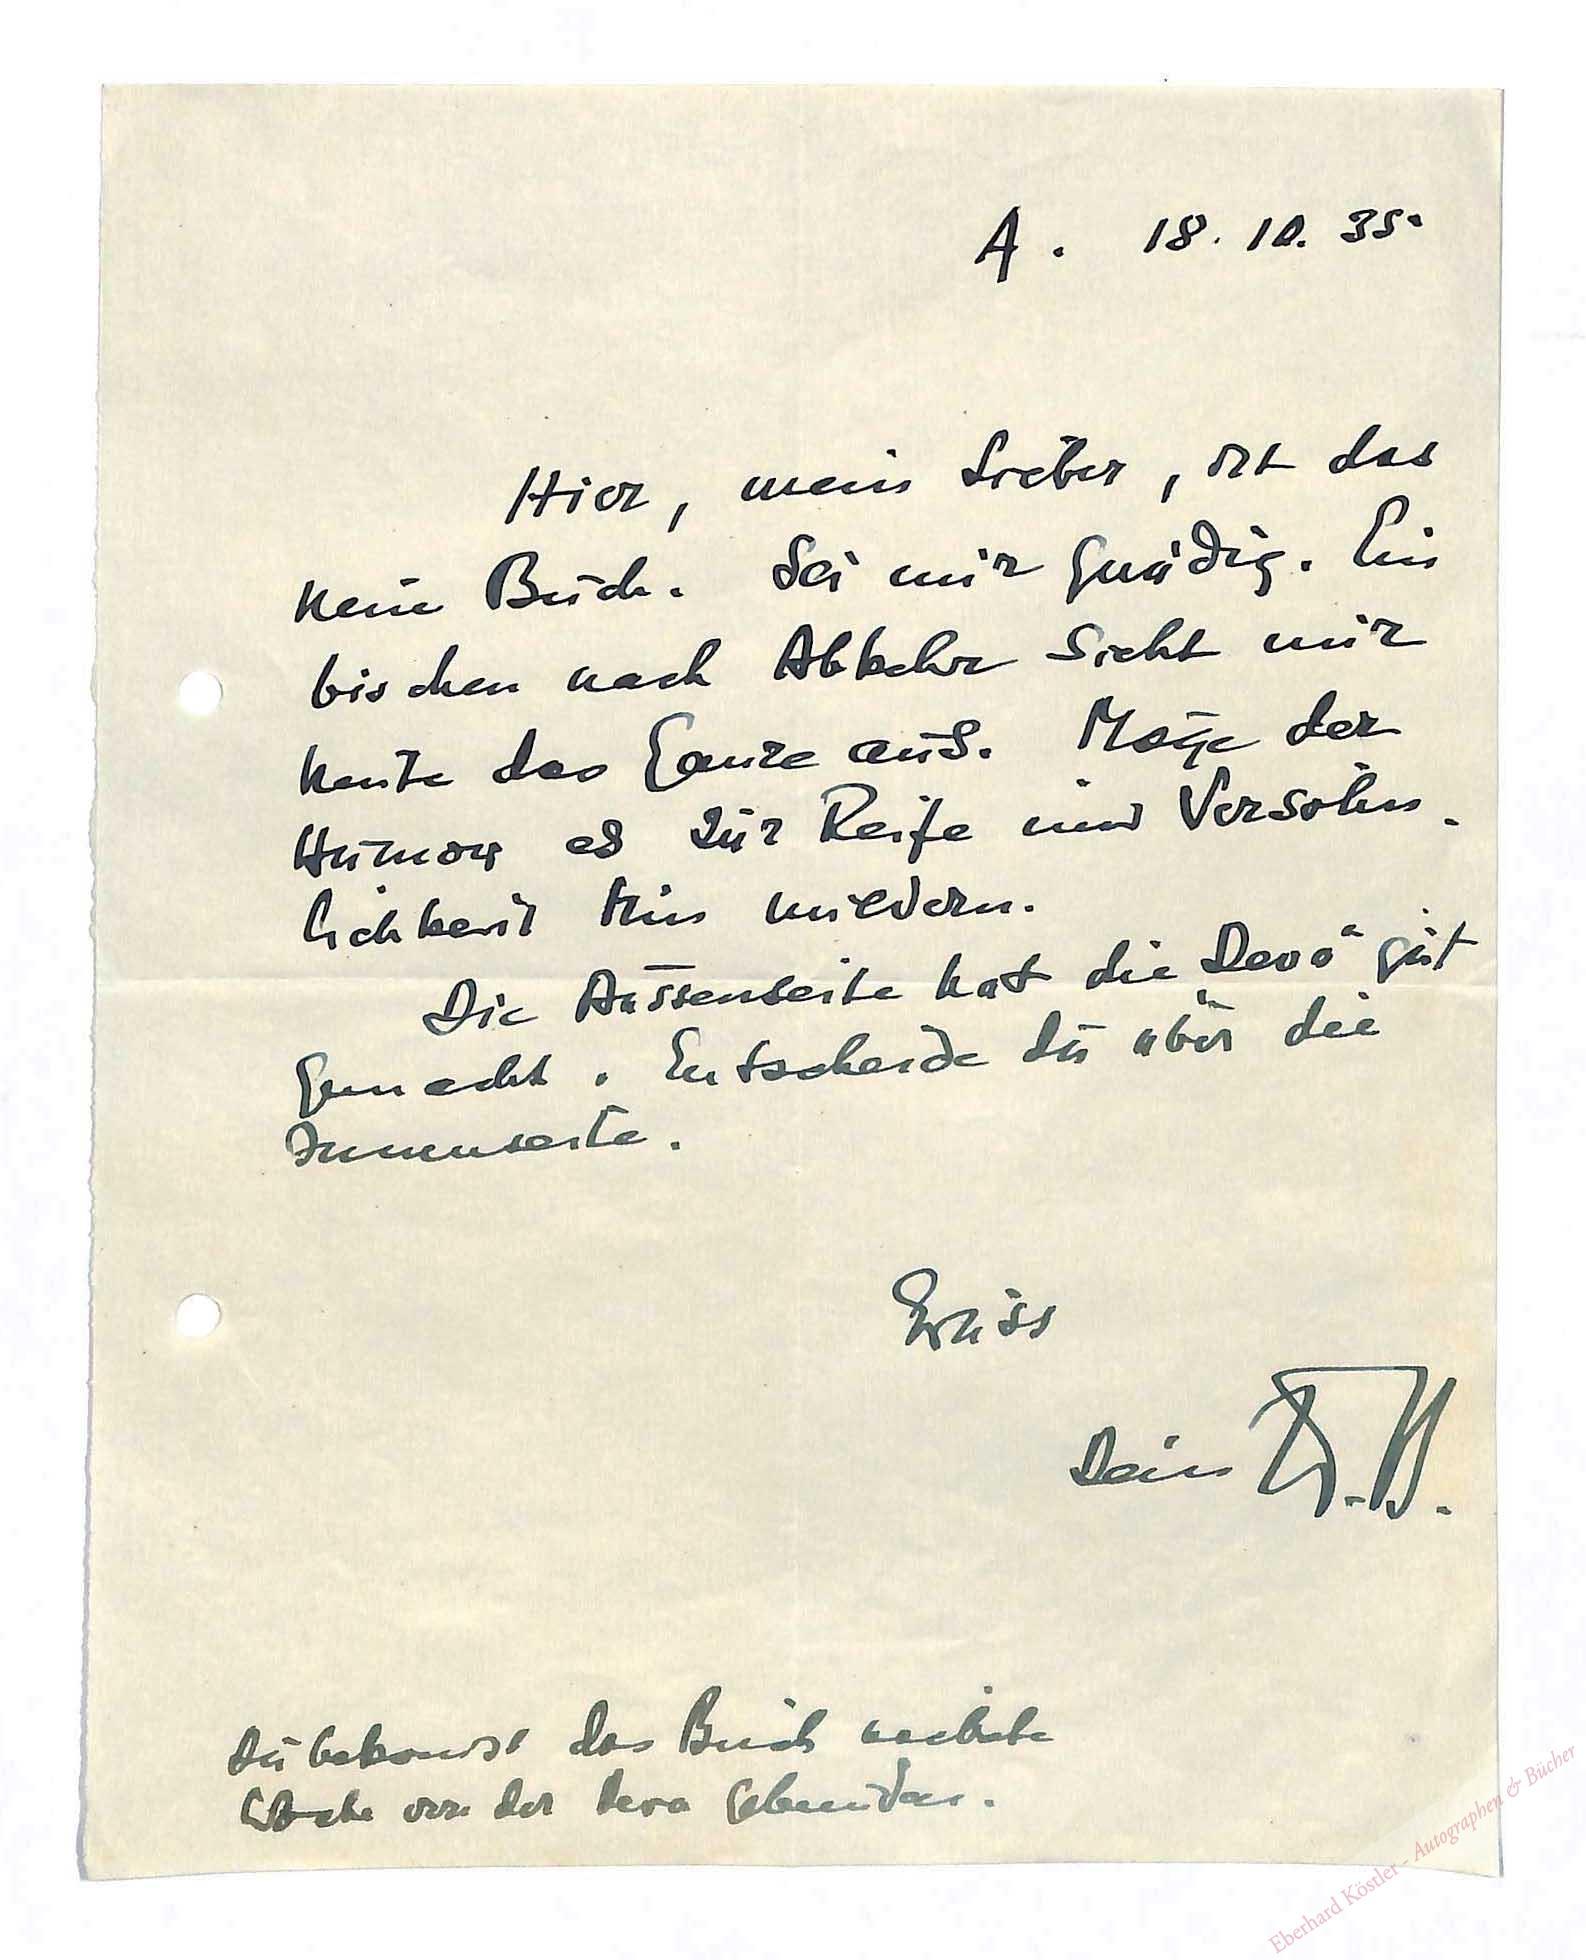 A. 18. 10. 35.
Hier, mein Lieber, ist das
neue Buch. Sei mir gnädig. Ein
bischen nach Abkehr sieht mir
heute das Ganze aus. Möge der
Humor es zur Reife und Versöhn-
lichkeit hin mildern.
Die Aussenseite hat die „Deva“ gut
gemacht. Entscheide Du über die
Innenseite.
Gruss
Dein
Du bekommst das Buch nächste
Woche von der Deva gebunden.
Eberhard Köstler - Autographen & Bücher